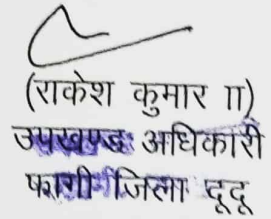 (राकेश कुमार II)
उपखण्ड अधिकारी
फागी जिला दूदू